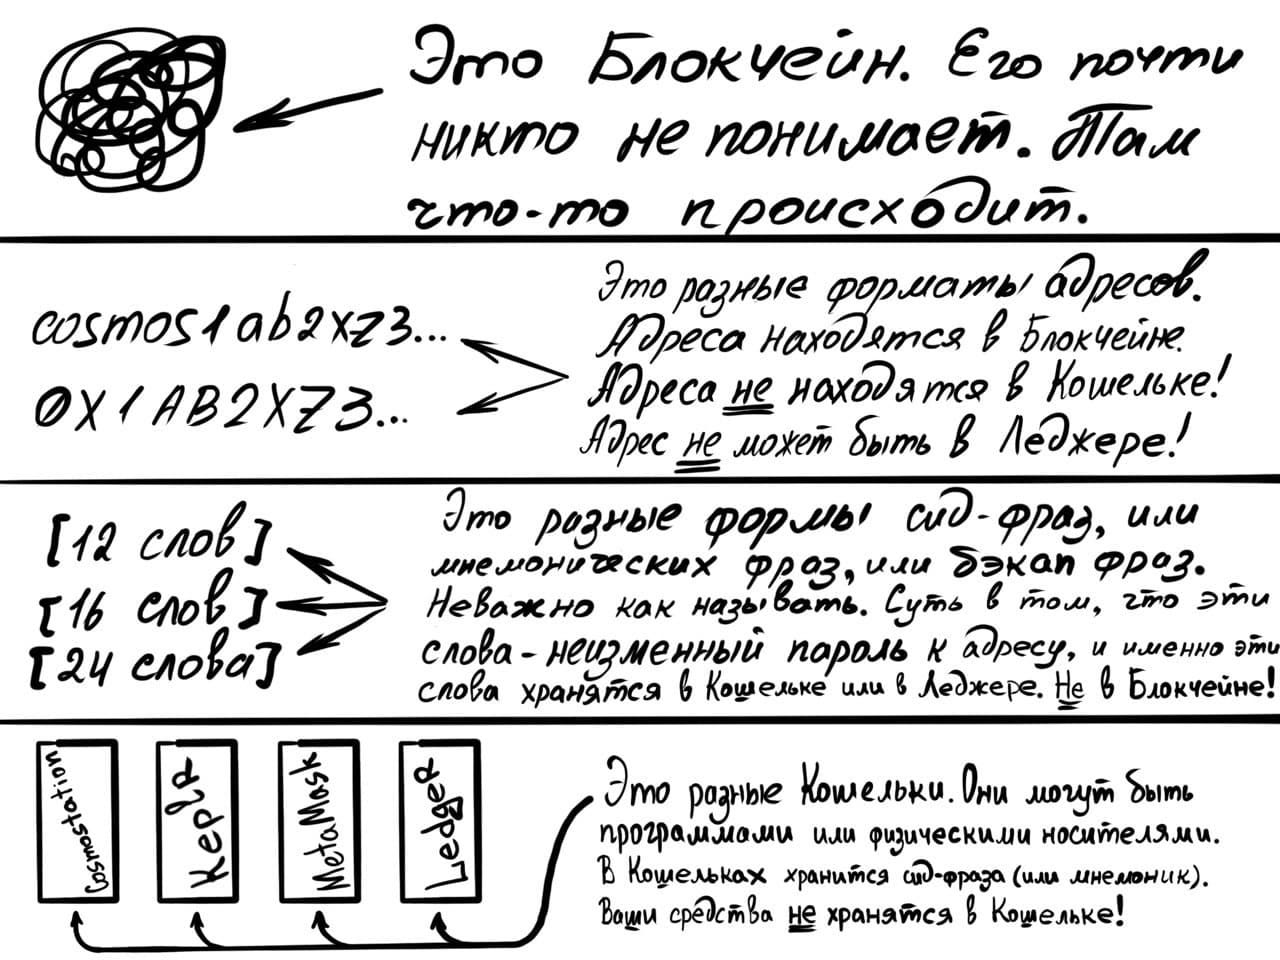 Это Блокчейн. Его почти
никто не понимает. Там
что-то происходит.
cosmos1ab2xz3...
0X1AB2XZ3...
Это разные форматы адресов.
Адреса находятся в Блокчейне.
Адреса не находятся в Кошельке!
Адрес не может быть в Леджере!
[12 слов]
[16 слов]
[24 слова]
Это разные формы сид-фраз, или
мнемонических фраз, или бэкап фраз.
Неважно как называть. Суть в том, что эти
слова - неизменный пароль к адресу, и именно эти
слова хранятся в Кошельке или в Леджере. Не в Блокчейне!
Cosmostation
Keplr
MetaMask
Ledger
Это разные Кошельки. Они могут быть
программами или физическими носителями.
В Кошельках хранится сид-фраза (или мнемоник).
Ваши средства не хранятся в Кошельке!